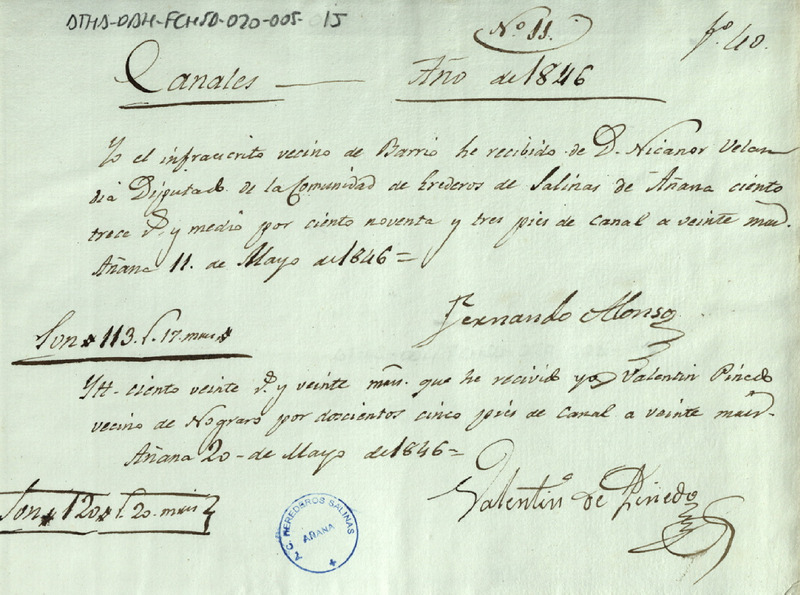 ATHA-DAH-FCHSA-020-005- 15
Nº 11.
fº 40.
Canales — Año de 1846
Yo el infraescrito vecino de Barrio he recibido de D. Nicanor Velan
dia Diputado de la Comunidad de Erederos de Salinas de Añana ciento
trece rs. y medio por ciento noventa y tres pies de canal a veinte mrs.
Añana 11. de Mayo de 1846=
Fernando Alonso
Son 113. rs. 17. mrs
Yt. ciento veinte rs. y veinte mrs. que he recivido yo Valentin Pinedo
vecino de Nograro por doscientos cinco pies de canal a veinte mrs.
Añana 20 de Mayo de 1846=
Valentin de Pinedo
Son 120 rs. 20. mrs
A.C. HEREDEROS SALINAS
AÑANA